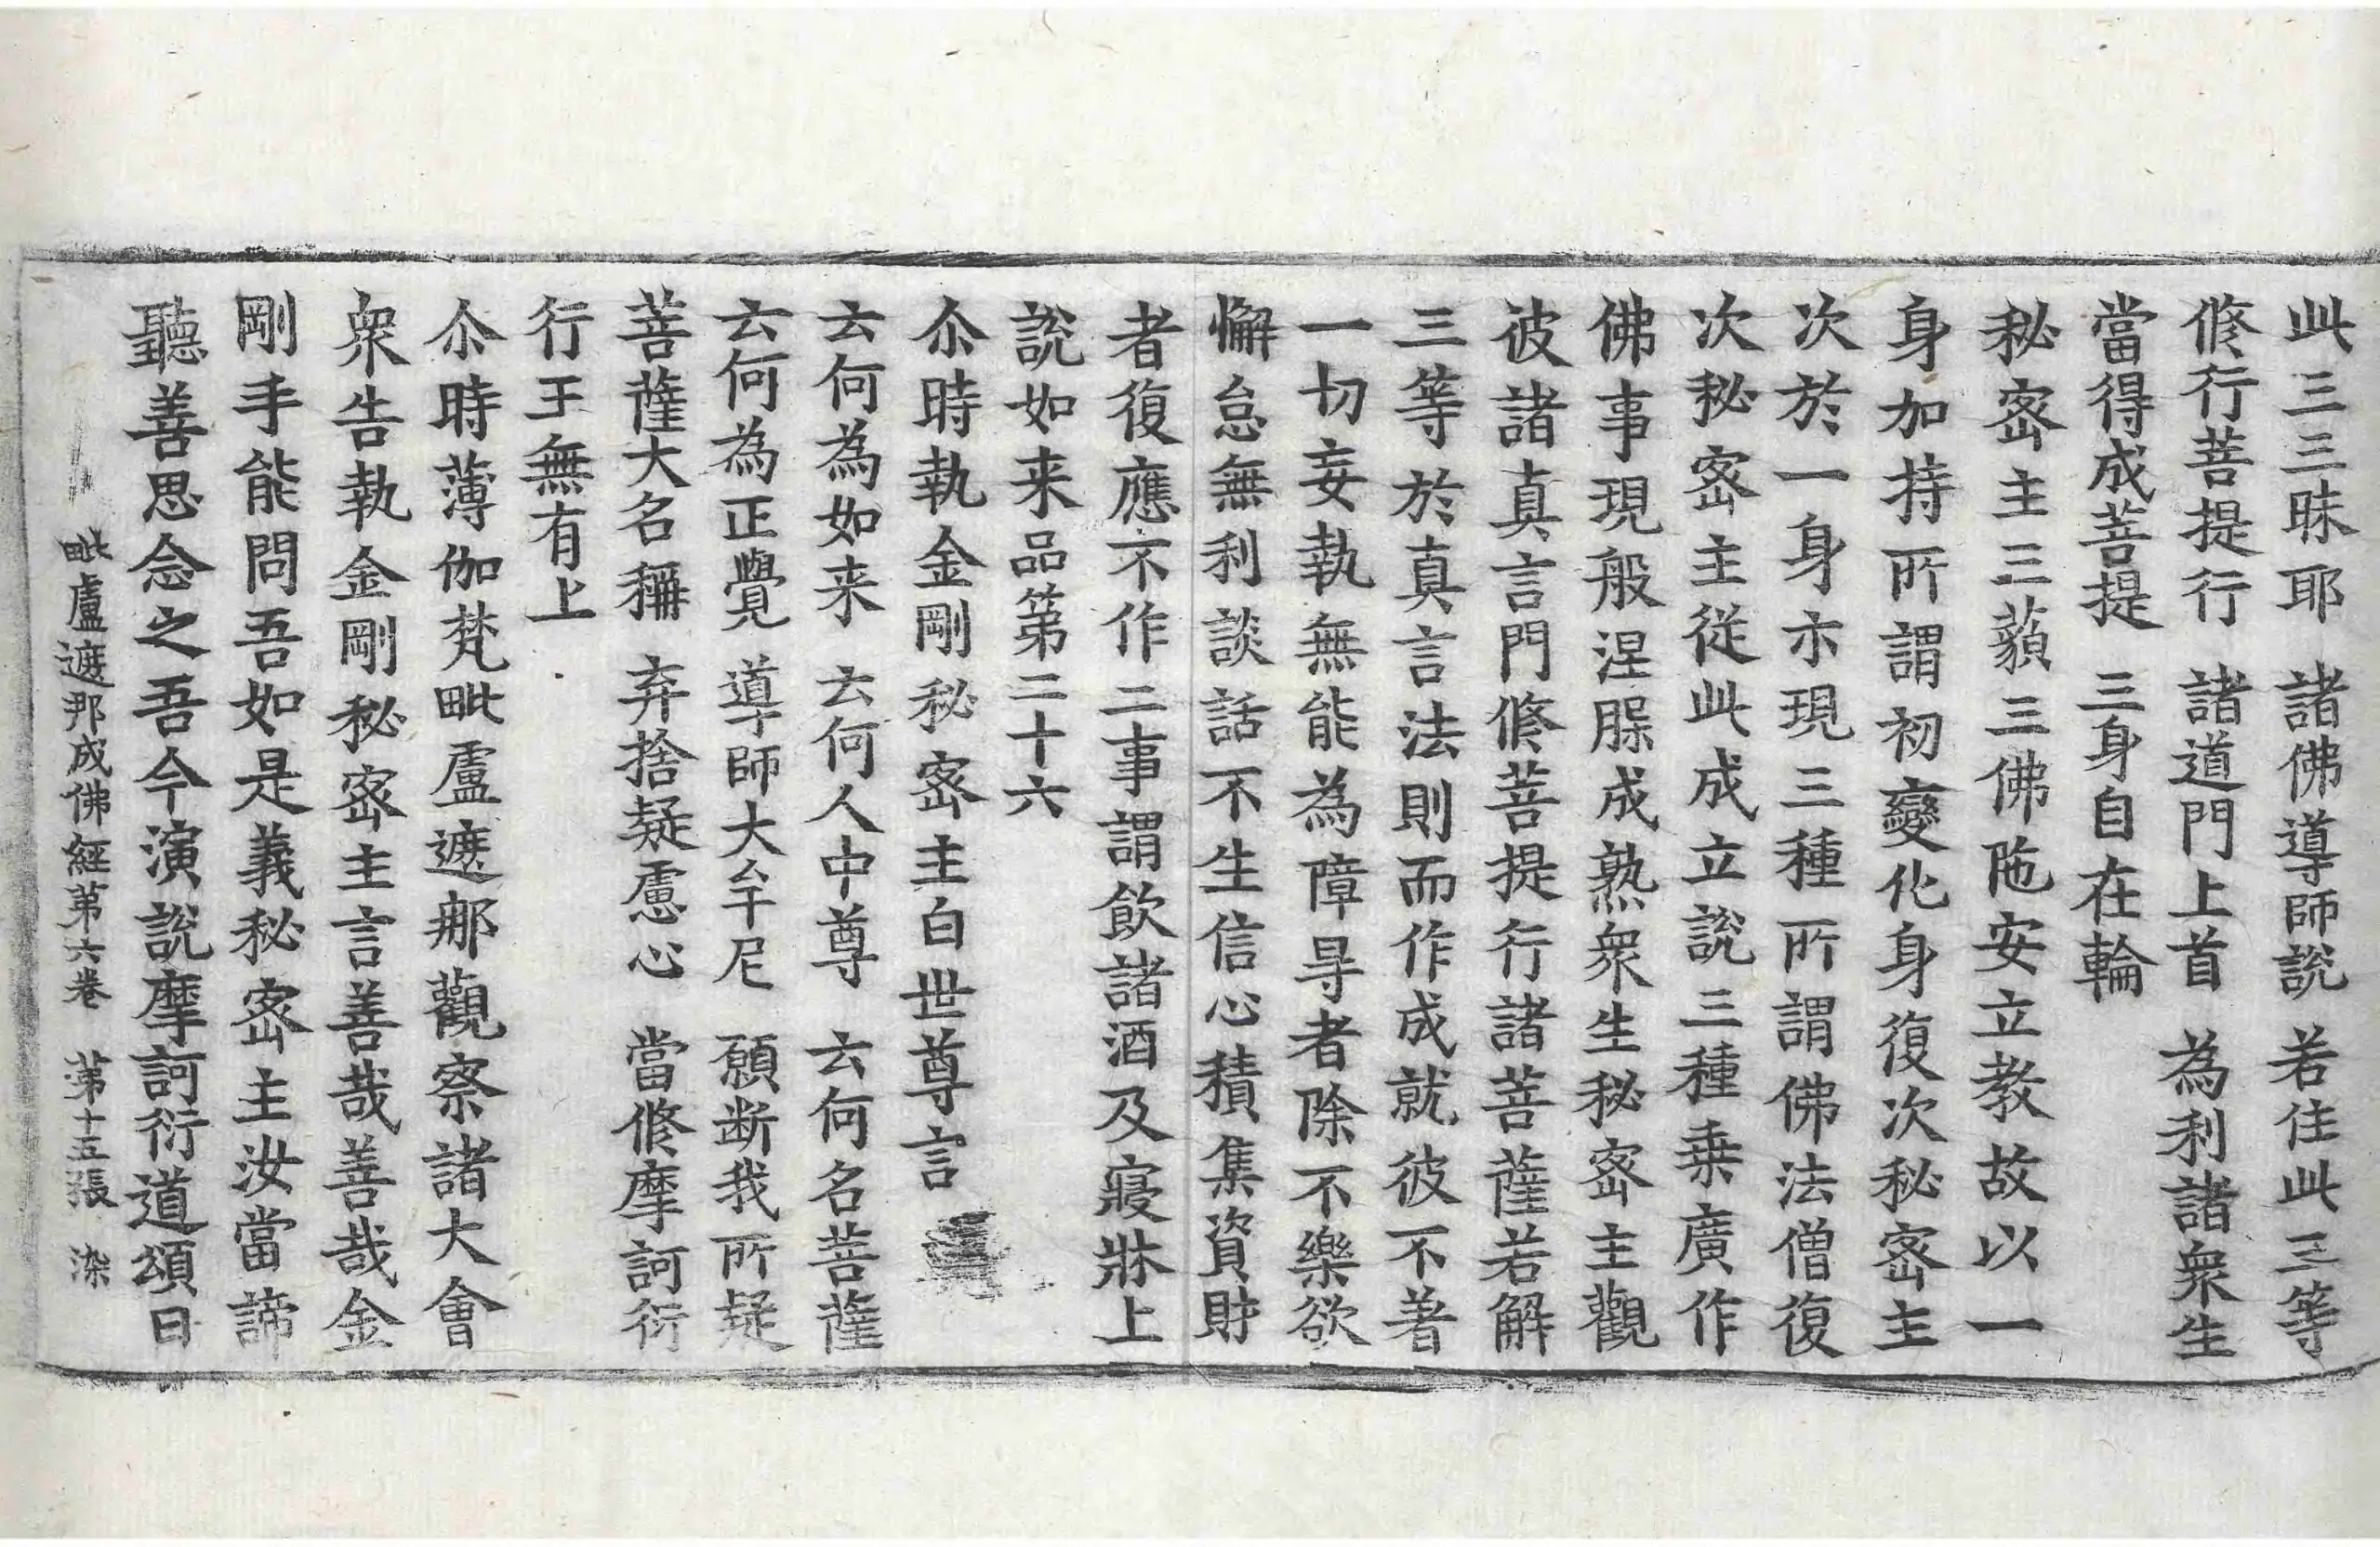 此三三昧耶　諸佛導師說　若住此三等
修行菩提行　諸道門上首　為利諸衆生
當得成菩提　三身自在輪
秘密主三藐三佛陁安立教故以一
身加持所謂初變化身復次秘密主
次於一身示現三種所謂佛法僧復
次秘密主從此成立說三種乗廣作
佛事現般涅脲成熟衆生秘密主觀
彼諸真言門修菩提行諸菩薩若解
三等於真言法則而作成就彼不著
一切妄執無能為障㝵者除不樂欲
懈怠無利談話不生信心積集資財
者復應不作二事謂飲諸酒及寢牀上
說如来品第二十六
尒時執金剛秘密主白世尊言
云何為如来　云何人中尊　云何名菩薩
云何為正覺　導師大牟尼　願断我所疑
菩薩大名稱　弃捨疑慮心　當修摩訶衍
行王無有上
尒時薄伽梵毗盧遮那觀察諸大會
衆告執金剛秘密主言善哉善哉金
剛手能問吾如是義秘密主汝當諦
聽善思念之吾今演說摩訶衍道頌曰
毗盧遮那成佛經第六卷　第十五張　染